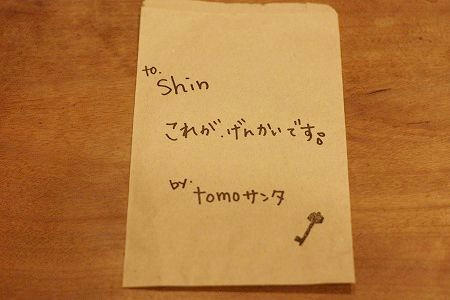 to.
Shin
これが.げんかいです。
by.
tomoサンタ